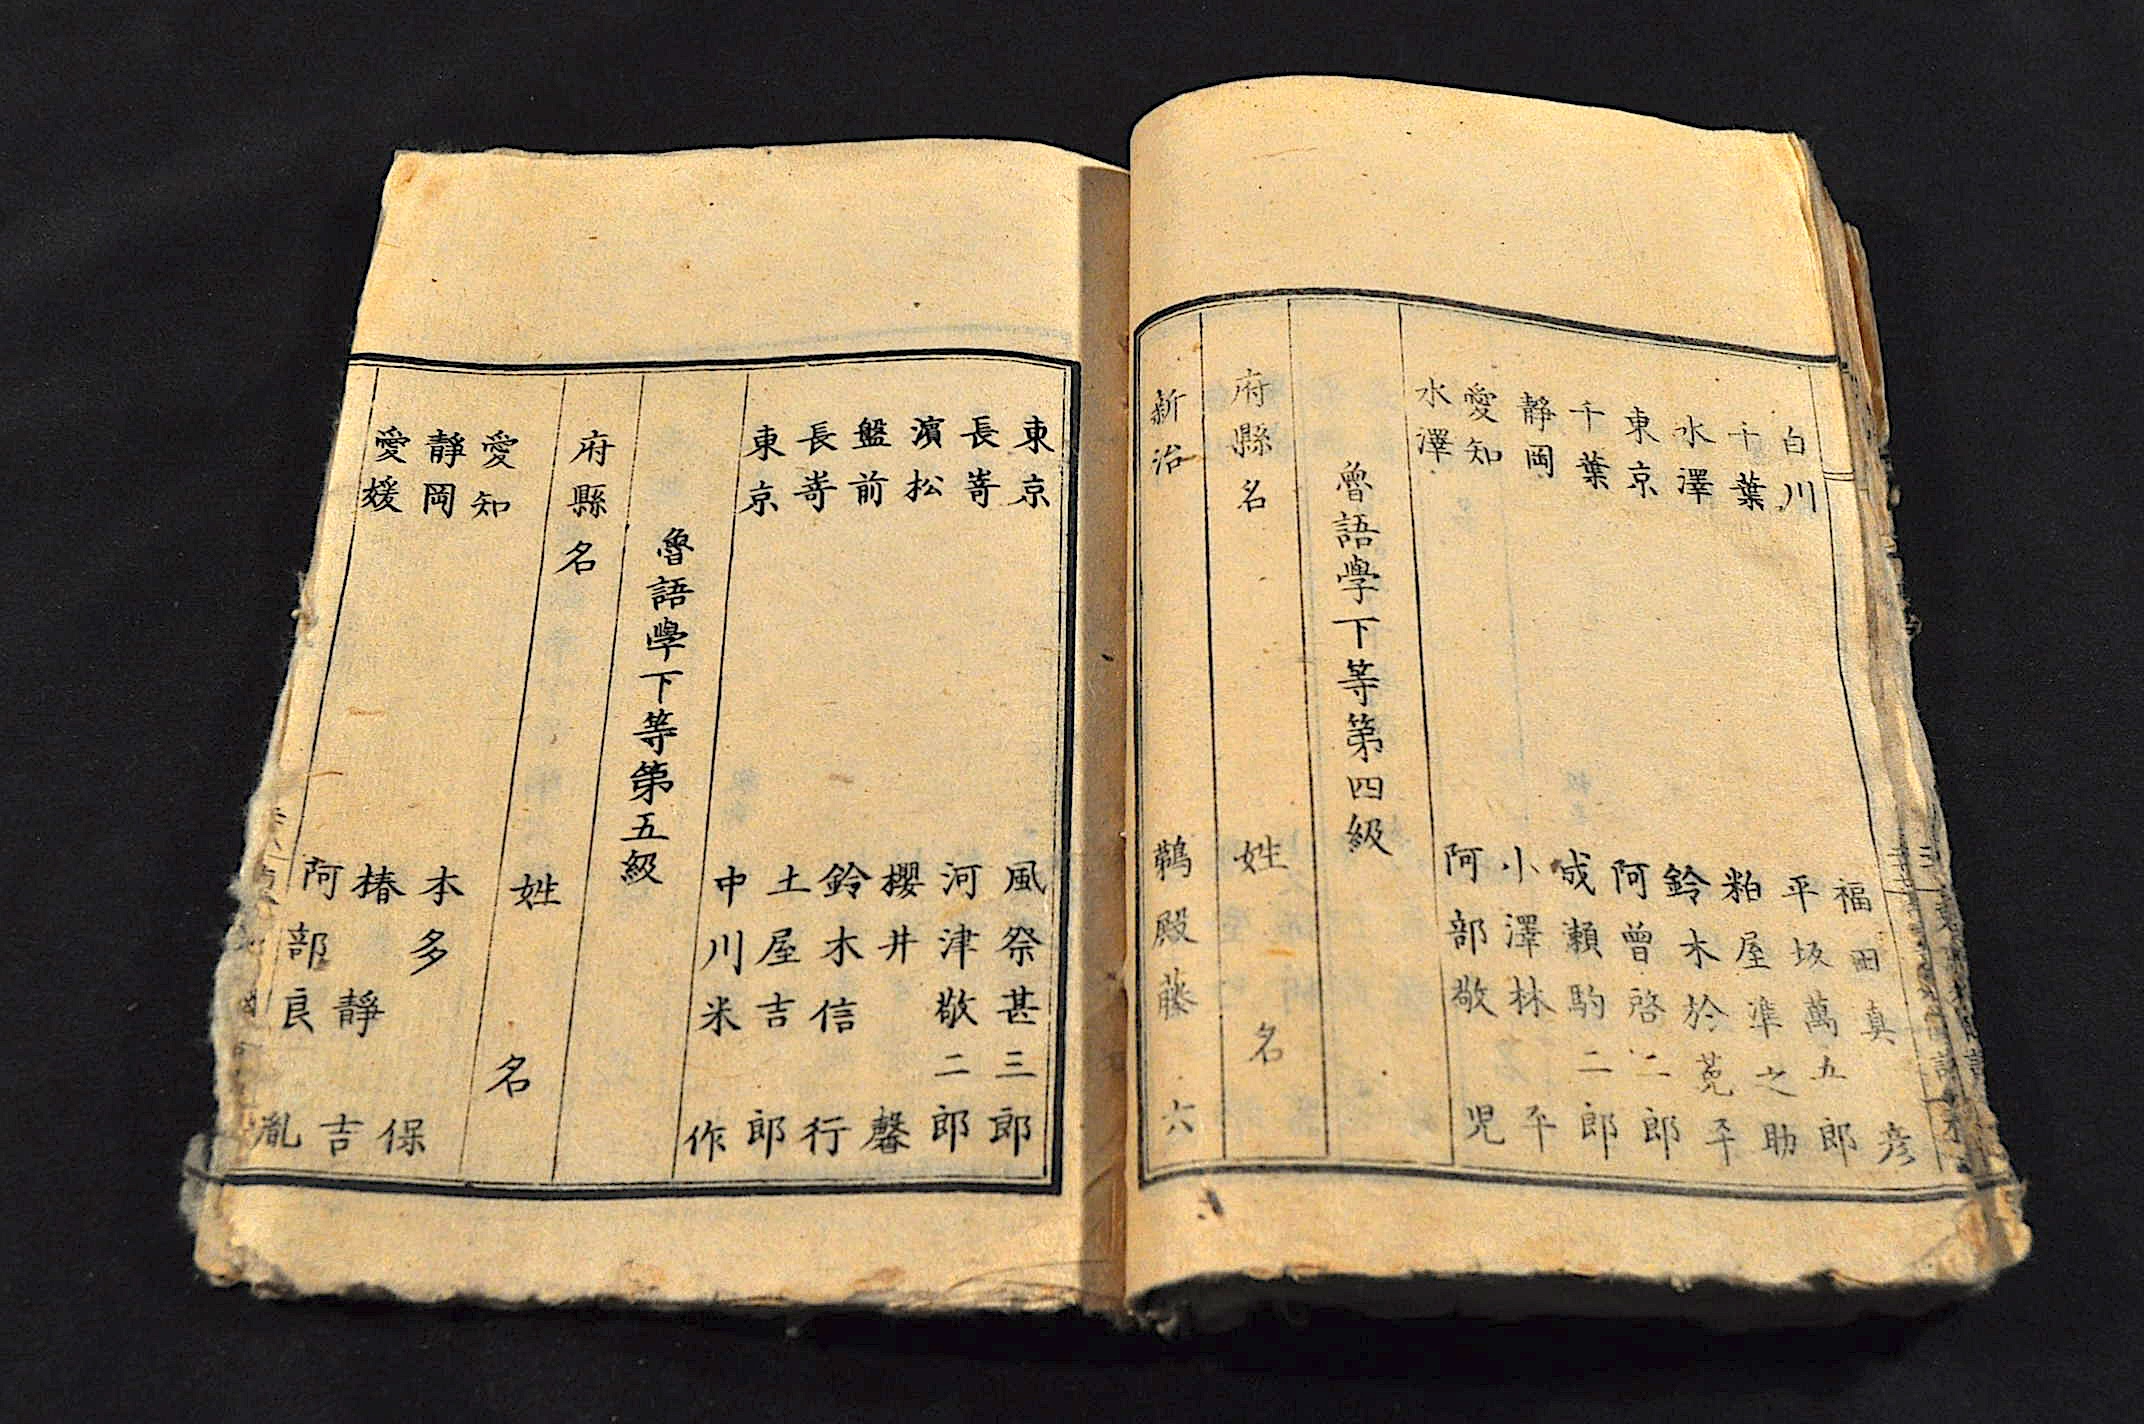 白川 福田真彦
千葉 平坂萬五郎
水澤 粕屋準之助
東京 鈴木於菟平
千葉 阿曾啓二郎
靜岡 成瀬駒二郎
愛知 小澤林平
水澤 阿部敬児
魯語學下等第四級
府縣名 姓名
新治 鵜殿藤六
東京 風祭甚三郎
長嵜 河津敬二郎
濱松 櫻井馨
盤前 鈴木信行
長嵜 土屋吉郎
東京 中川米作
魯語學下等第五級
府縣名 姓名
愛知 本多保
靜岡 椿靜吉
愛媛 阿部良胤